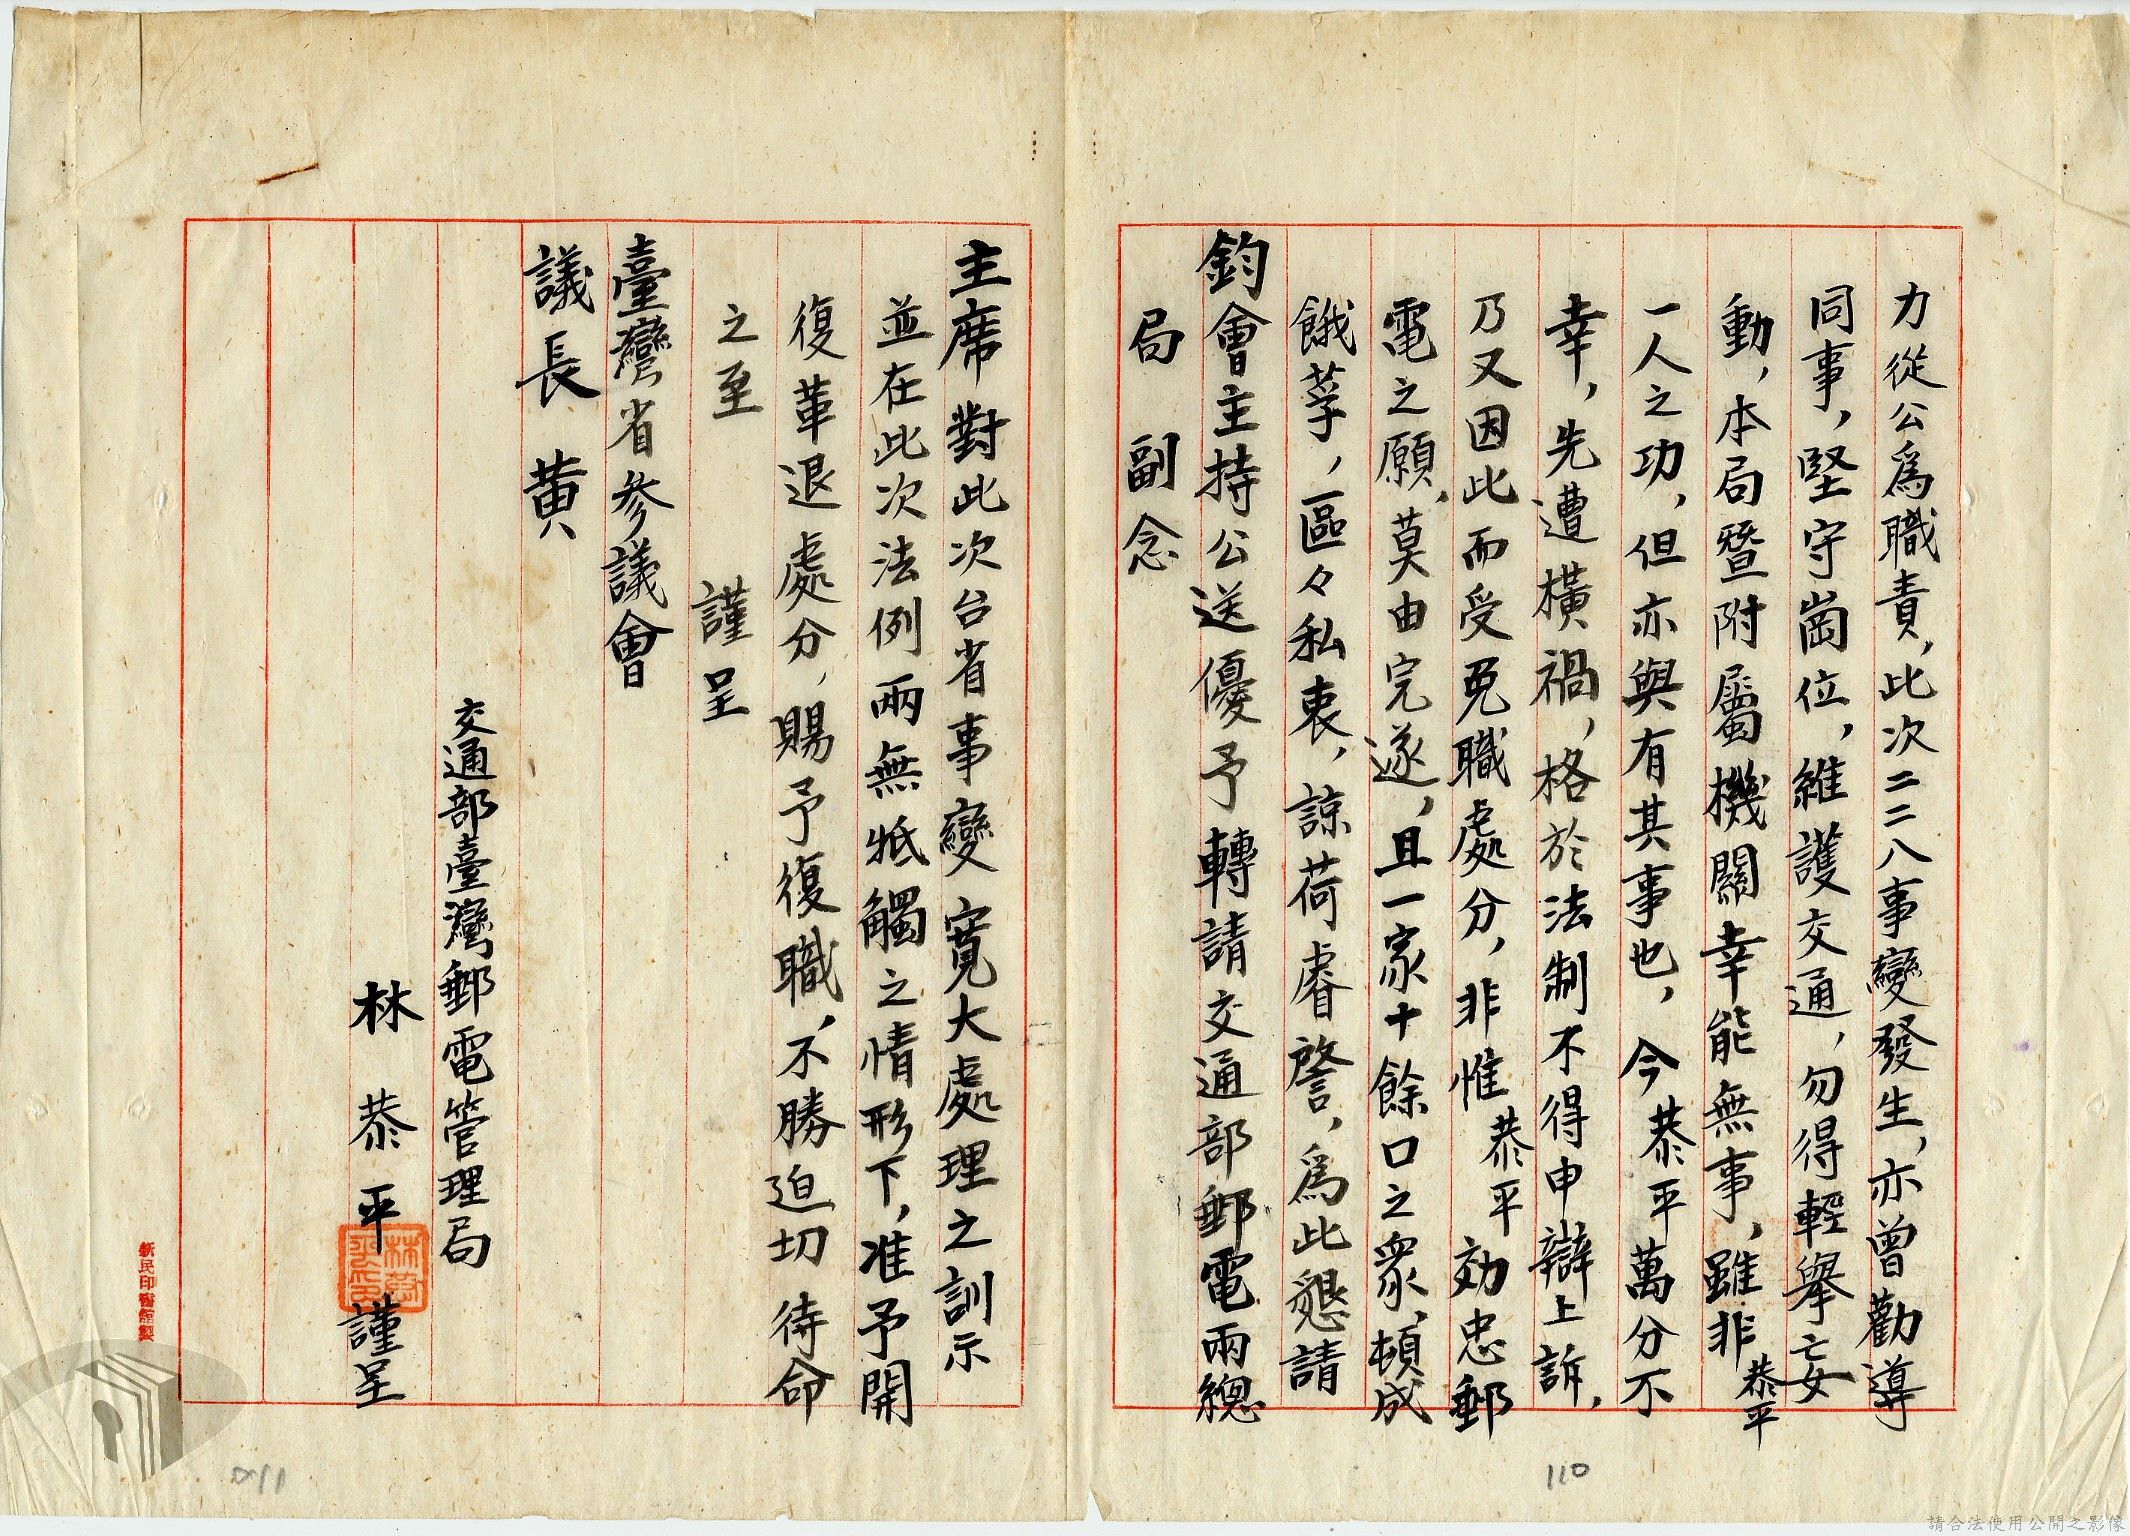 力從公爲職責，此次二二八事變發生，亦曾勸導
同事，堅守崗位，維護交通，勿得輕舉妄
動，本局暨附屬機關幸能無事，雖非恭平
一人之功，但亦與有其事也，今恭平萬分不
幸，先遭橫禍，格於法制不得申辯上訴，
乃又因此而受免職處分，非惟恭平効忠郵
電之願，莫由完遂，且一家十餘口之衆，頓成
餓莩，區々私衷，諒荷睿詧，爲此懇請
鈞會主持公送優予轉請交通部郵電兩總
局副念
主席對此次台省事變寬大處理之訓示
並在此次法例兩無牴觸之情形下，准予開
復革退處分，賜予復職，不勝迫切待命
之至　謹呈
臺灣省參議會
議長黄
交通部臺灣郵電管理局
林恭平謹呈
新民印書館製
110
請合法使用公開之影像